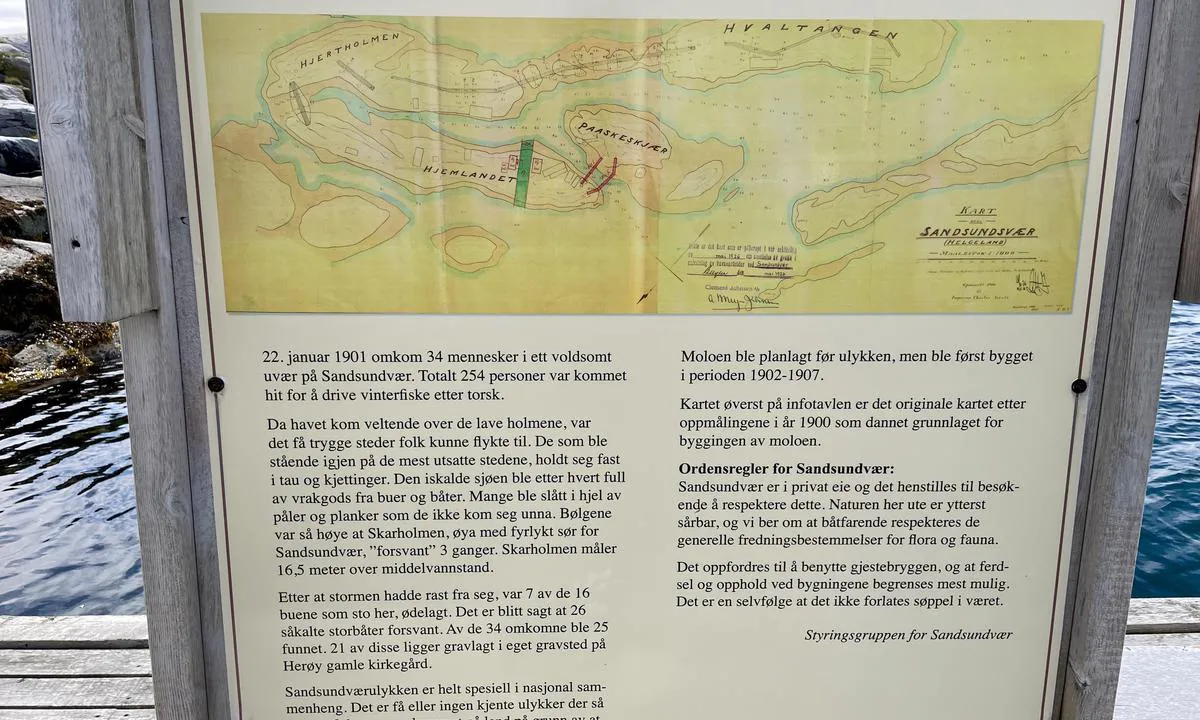 HJERTHOLMEN
HVALTANGEN
PAASKESKJÆR
HJEMLANDET
KART
OVER
SANDSUNDSVÆR
(HELGELAND)
22. januar 1901 omkom 34 mennesker i ett voldsomt
uvær på Sandsundvær. Totalt 254 personer var kommet
hit for å drive vinterfiske etter torsk.
Da havet kom veltende over de lave holmene, var
det få trygge steder folk kunne flykte til. De som ble
stående igjen på de mest utsatte stedene, holdt seg fast
i tau og kjettinger. Den iskalde sjøen ble etter hvert full
av vrakgods fra buer og båter. Mange ble slått i hjel av
påler og planker som de ikke kom seg unna. Bølgene
var så høye at Skarholmen, øya med fyrlykt sør for
Sandsundvær, ”forsvant” 3 ganger. Skarholmen måler
16,5 meter over middelvannstand.
Etter at stormen hadde rast fra seg, var 7 av de 16
buene som sto her, ødelagt. Det er blitt sagt at 26
såkalte storbåter forsvant. Av de 34 omkomne ble 25
funnet. 21 av disse ligger gravlagt i eget gravsted på
Herøy gamle kirkegård.
Sandsundværulykken er helt spesiell i nasjonal sam-
menheng. Det er få eller ingen kjente ulykker der så
Moloen ble planlagt før ulykken, men ble først bygget
i perioden 1902-1907.
Kartet øverst på infotavlen er det originale kartet etter
oppmålingene i år 1900 som dannet grunnlaget for
byggingen av moloen.
Ordensregler for Sandsundvær:
Sandsundvær er i privat eie og det henstilles til besøk-
ende å respektere dette. Naturen her ute er ytterst
sårbar, og vi ber om at båtfarende respekteres de
generelle fredningsbestemmelser for flora og fauna.
Det oppfordres til å benytte gjestebryggen, og at ferd-
sel og opphold ved bygningene begrenses mest mulig.
Det er en selvfølge at det ikke forlates søppel i været.
Styringsgruppen for Sandsundvær